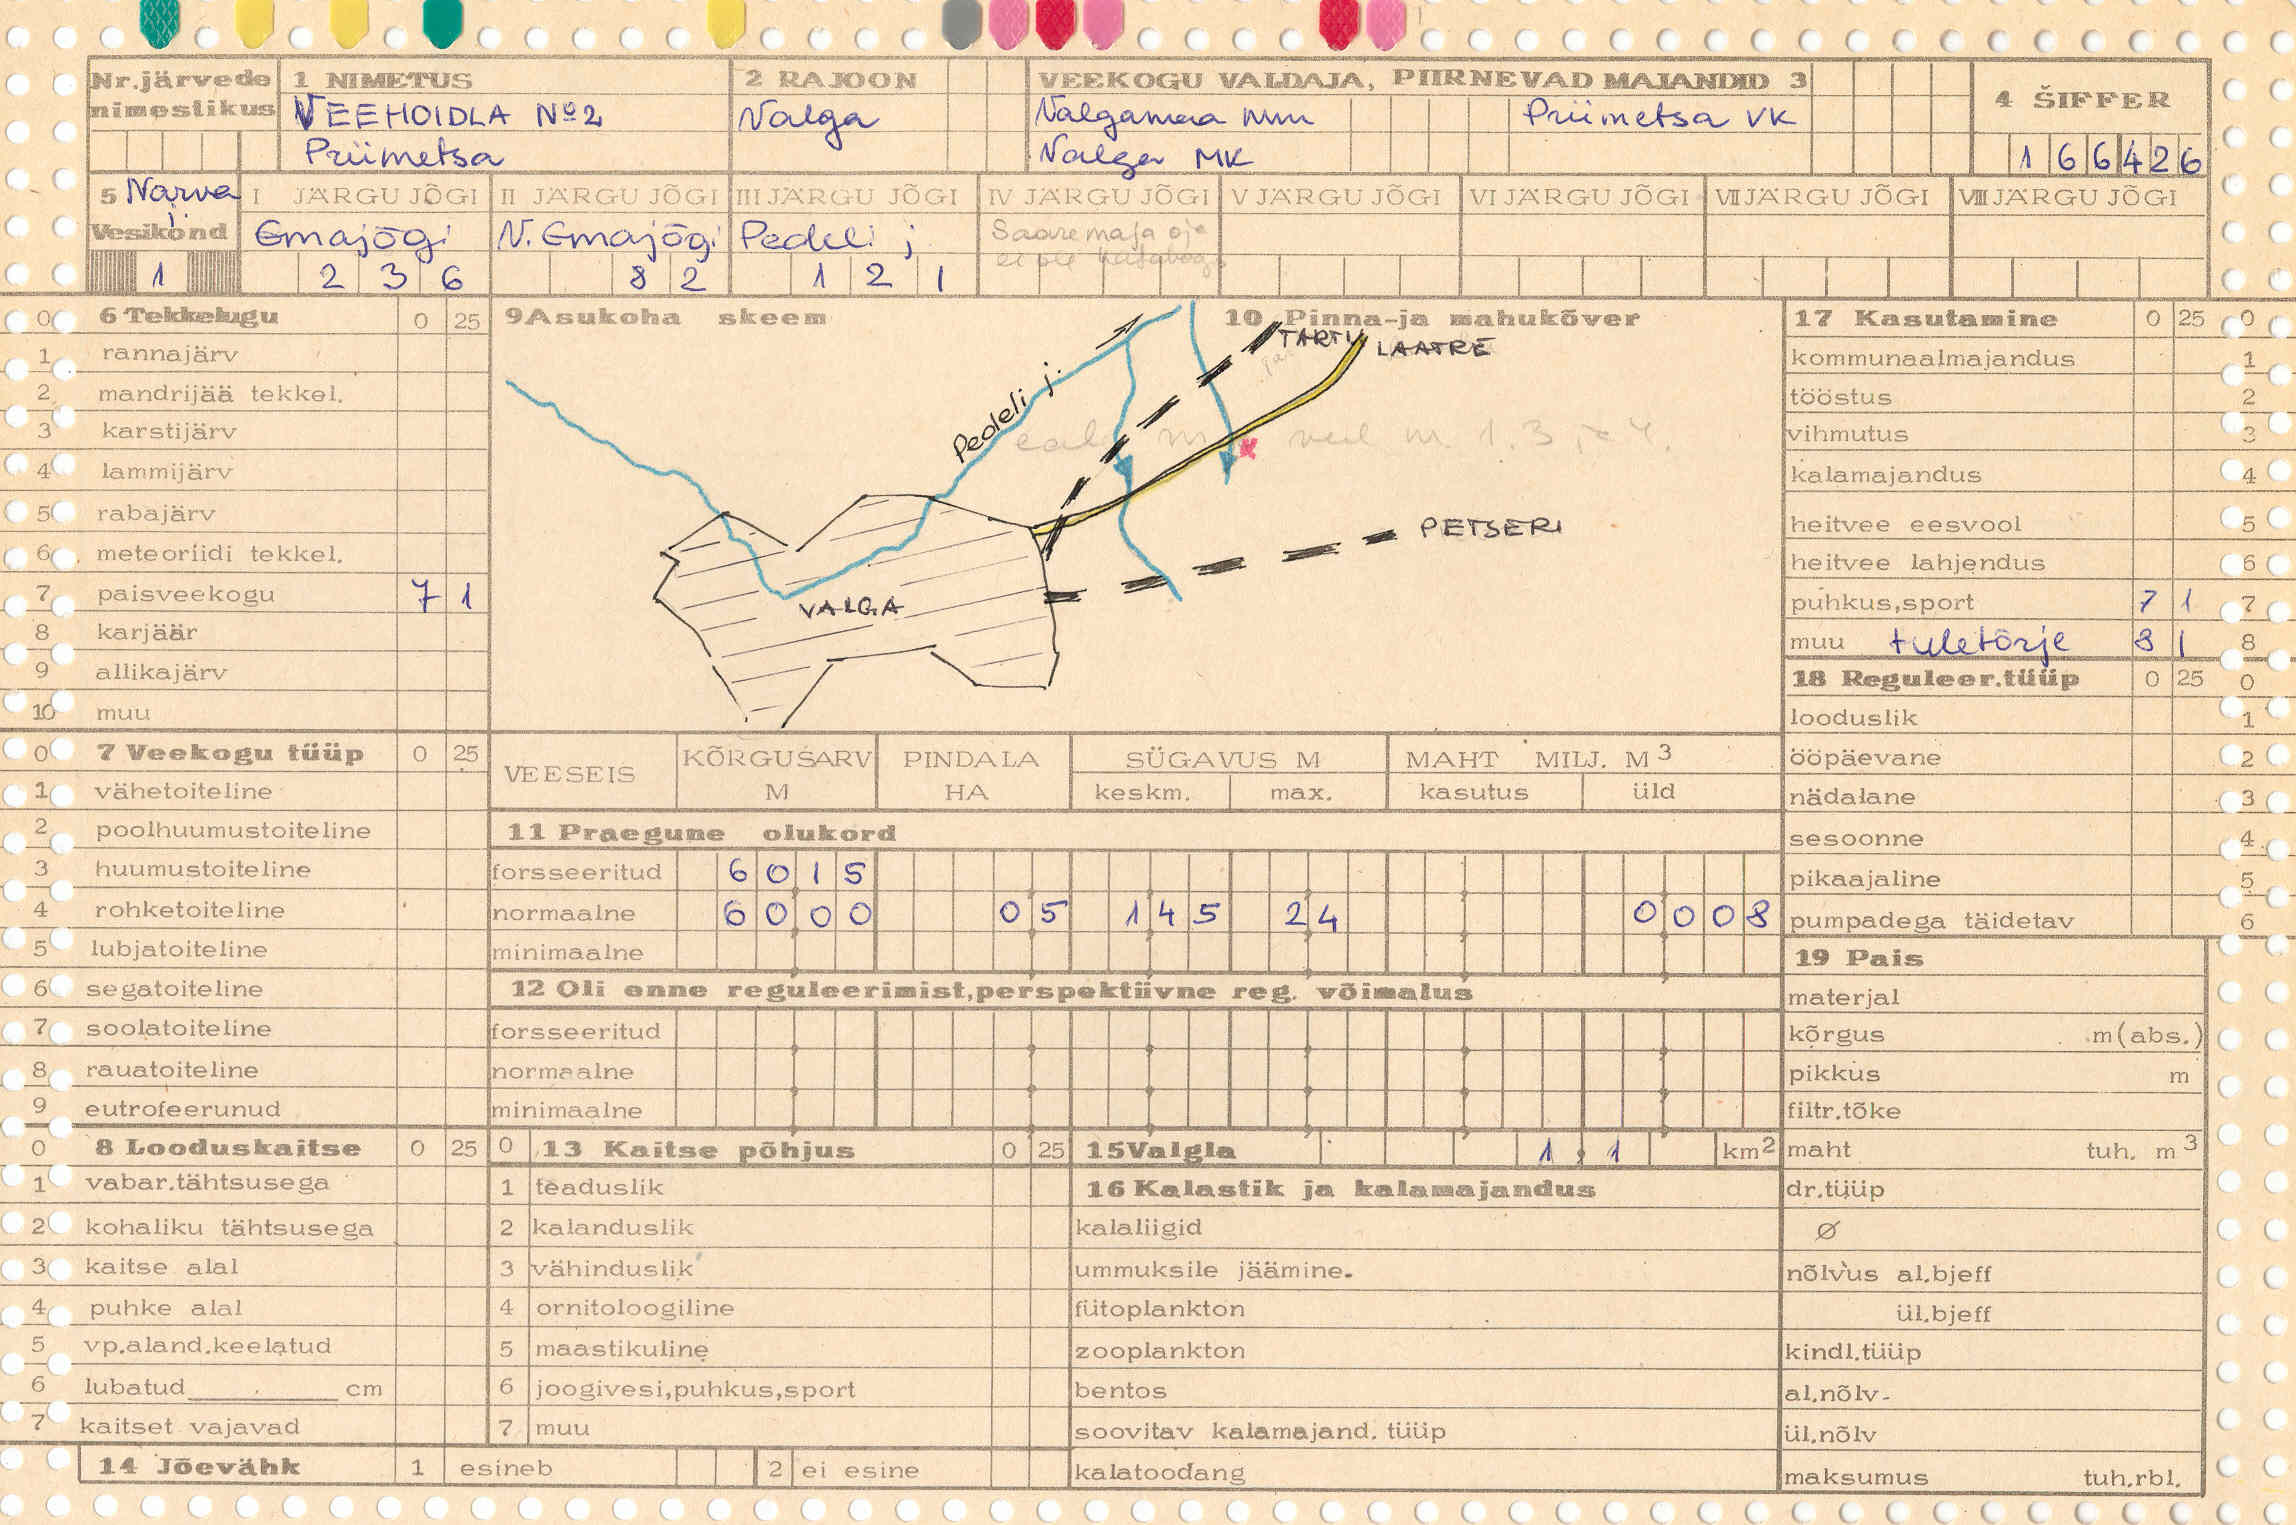 Nr.järvede nimestikus
1 NIMETUS
VEEHOIDLA No2
Priimetsa
2 RAJOON
Valga
VEEKOGU VALDAJA, PIIRNEVAD MAJANDID 3
Valgamaa MM Priimetsa VK
Valga MK
4 ŠIFFER
1 6 6 4 2 6
5 Narva j.
Vesikond
1
I JÄRGU JÕGI
Emajõgi
2 3 6
II JÄRGU JÕGI
V. Emajõgi
8 2
III JÄRGU JÕGI
Pedeli j
1 2 1
IV JÄRGU JÕGI
Saaremaja oja
ei ole
V JÄRGU JÕGI
VI JÄRGU JÕGI
VII JÄRGU JÕGI
VIII JÄRGU JÕGI
0 6 Tekkelugu 0 25
1 rannajärv
2 mandrijää tekkel.
3 karstijärv
4 lammijärv
5 rabajärv
6 meteoriidi tekkel.
7 paisveekogu 7 1
8 karjäär
9 allikajärv
10 muu
0 7 Veekogu tüüp 0 25
1 vähetoiteline
2 poolhuumustoiteline
3 huumustoiteline
4 rohketoiteline
5 lubjatoiteline
6 segatoiteline
7 soolatoiteline
8 rauatoiteline
9 eutrofeerunud
0 8 Looduskaitse 0 25
1 vabar.tähtsusega
2 kohaliku tähtsusega
3 kaitse alal
4 puhke alal
5 vp.aland.keelatud
6 lubatud cm
7 kaitset vajavad
9 Asukoha skeem
10 Pinna-ja mahukõver
TARTU
LAATRE
Pedeli j.
PETSERI
VALGA
VEESEIS
KÕRGUSARV M
PINDALA HA
SÜGAVUS M
keskm. max.
MAHT MILJ. M3
kasutus üld
11 Praegune olukord
forsseeritud 6 0 1 5
normaalne 6 0 0 0 0 5 1 4 5 2 4 0 0 0 8
minimaalne
12 Oli enne reguleerimist,perspektiivne reg. võimalus
forsseeritud
normaalne
minimaalne
0 13 Kaitse põhjus 0 25
1 teaduslik
2 kalanduslik
3 vähinduslik
4 ornitoloogiline
5 maastikuline
6 joogivesi,puhkus,sport
7 muu
14 Jõevähk 1 esineb 2 ei esine
15 Valgla 1 , 1 km2
16 Kalastik ja kalamajandus
kalaliigid
ummuksile jäämine.
fütoplankton
zooplankton
bentos
soovitav kalamajand. tüüp
kalatoodang
17 Kasutamine 0 25 0
kommunaalmajandus 1
tööstus 2
vihmutus 3
kalamajandus 4
heitvee eesvool 5
heitvee lahjendus 6
puhkus,sport 7 1 7
muu tuletõrje 8 1 8
18 Reguleer.tüüp 0 25 0
looduslik 1
ööpäevane 2
nädalane 3
sesoonne 4
pikaajaline 5
pumpadega täidetav 6
19 Pais
materjal
kõrgus m(abs.)
pikkus m
filtr.tõke
maht tuh. m3
dr.tüüp
ø
nõlvus al.bjeff
ül.bjeff
kindl.tüüp
al.nõlv.
ül.nõlv
maksumus tuh.rbl.